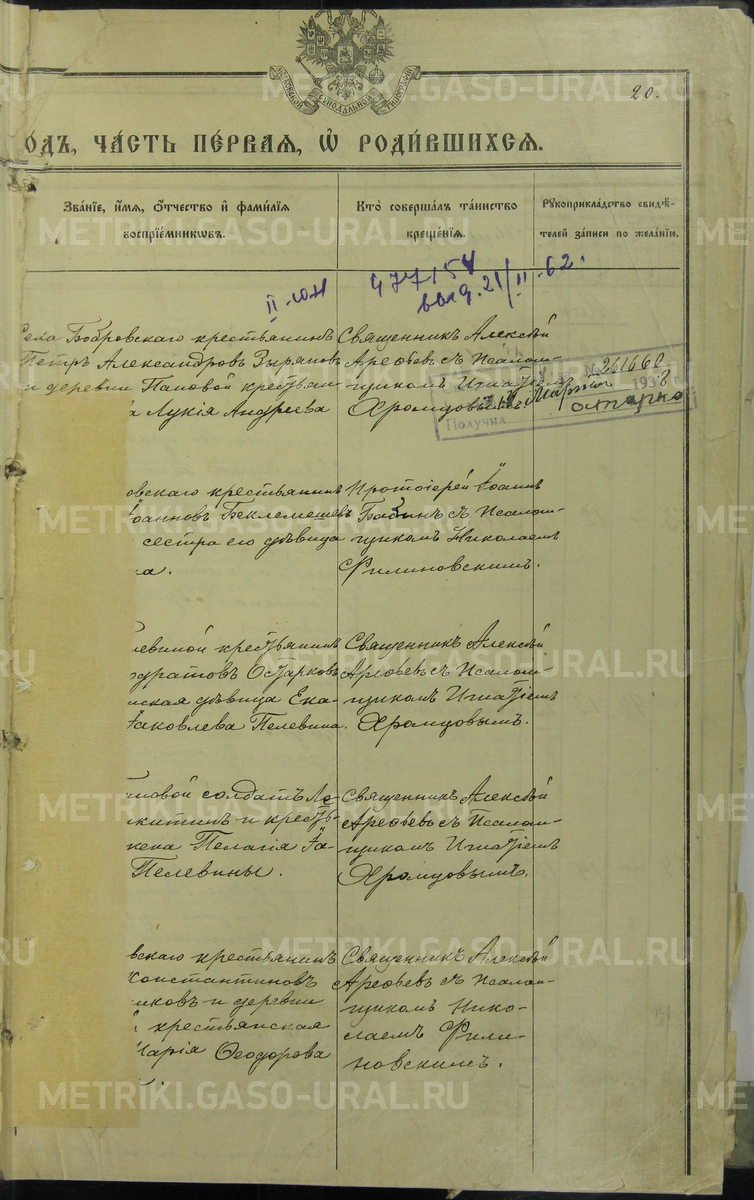 МОСКОВСКОЙ СѴНОДАЛЬНОЙ ТИПОГРАФІИ
20.
ОДЪ, ЧА́СТЬ ПЕ́РВАЯ, Ѡ҆ РОДИ́ВШИХСЯ.
Зва́нїе, и҆́мя, ѻ҆́тчество и҆ фами́лїя
воспрїе́мникѡвъ.
Кто̀ соверша́лъ та́инство
креще́нїя.
Рꙋкоприкла́дство свидѣ́-
телей за́писи по жела́нїю.
477154
выд. 21/II-62.
Села Бобровскаго крестьянинъ
Петръ Александровъ Зыряновъ
и деревни Пановой крестьян-
а Лукія Андреева
Священникъ Алексѣй
Арефьевъ съ Псалом-
щикомъ Игнатіемъ
Хромцовымъ.
№ 261660
1938 г.
Получил
овскаго крестьянинъ
Іоанновъ Беклемешевъ
сестра его дѣвица
на.
Протоіерей Іоаннъ
Бабинъ съ Псалом-
щикомъ Николаемъ
Филиновскимъ.
левиной крестьянинъ
дратовъ Остарковъ
нская дѣвица Ека-
Іаковлева Пелевина.
Священникъ Алексѣй
Арефьевъ съ Псалом-
щикомъ Игнатіемъ
Хромцовымъ.
новой солдатъ Ле-
икитинъ и крестъ-
жена Пелагія Іа-
Пелевины.
Священникъ Алексѣй
Арефьевъ съ Псалом-
щикомъ Игнатіемъ
Хромцовымъ.
вскаго крестьянинъ
Константиновъ
иковъ и деревни
крестьянская
Марія Ѳеодорова
Священникъ Алексѣй
Арефьевъ съ Псалом-
щикомъ Нико-
лаемъ Фили-
новскимъ.
METRIKI.GASO-URAL.RU